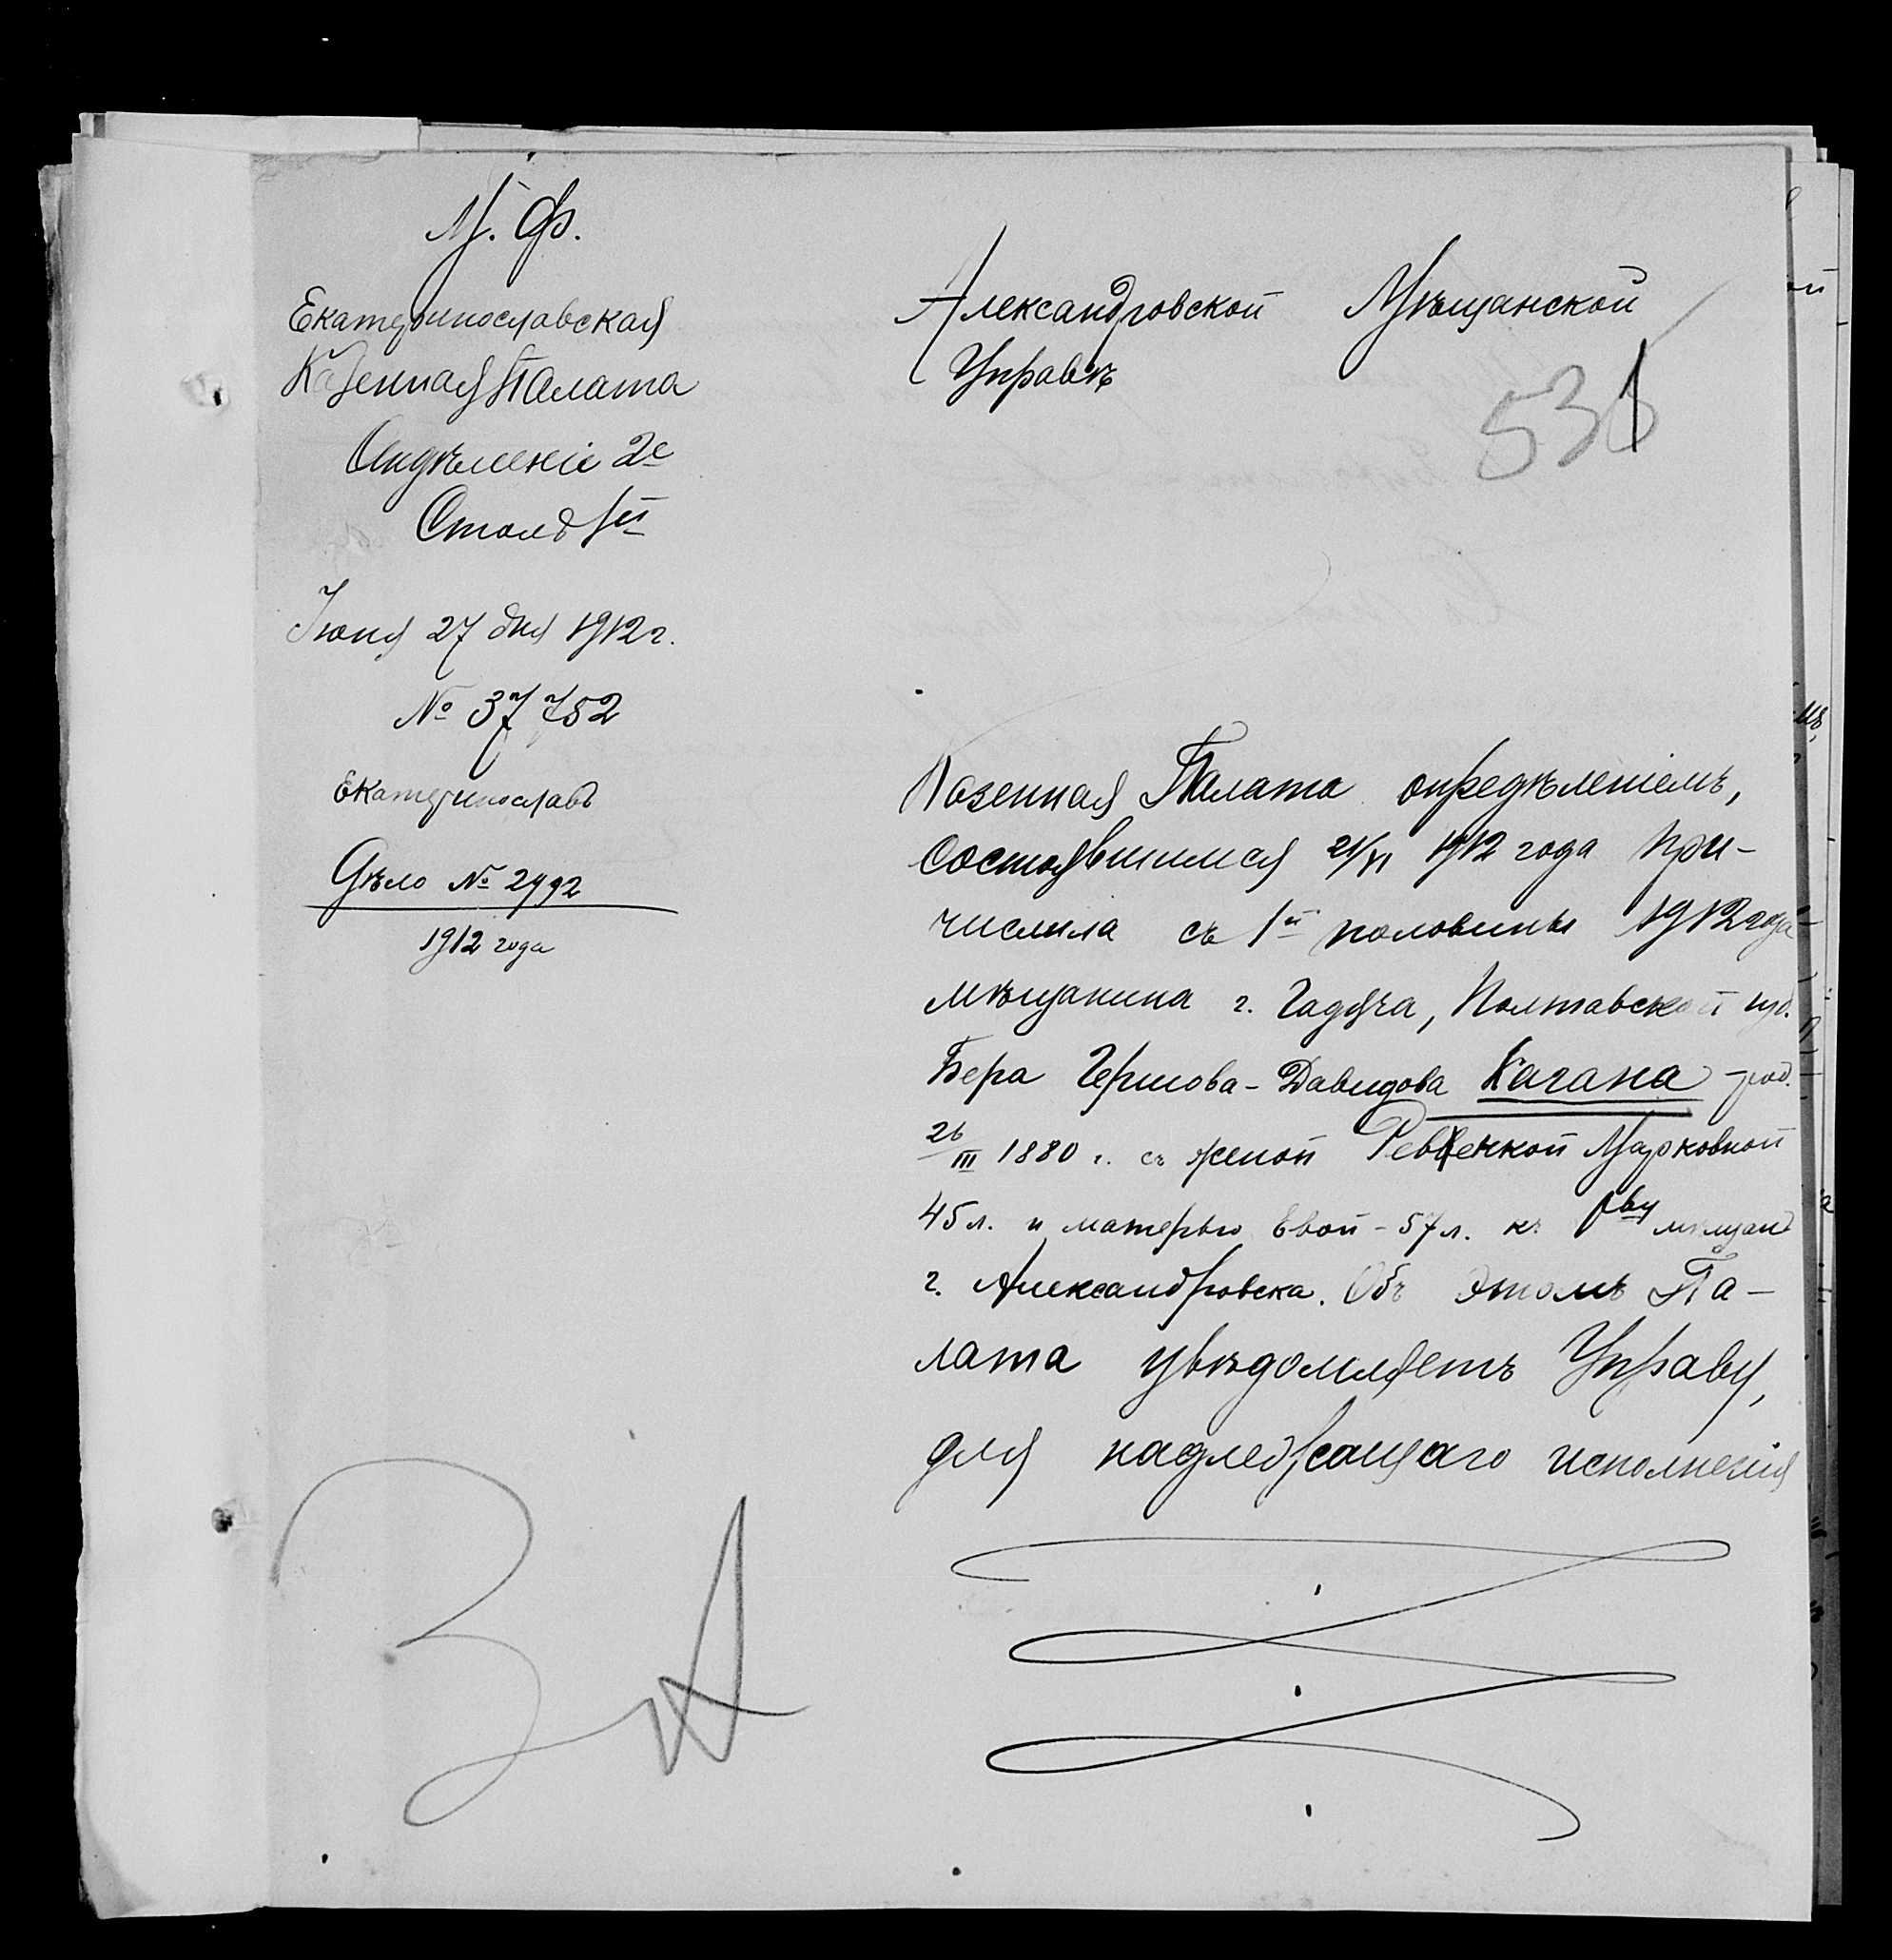 М. Ф.
Екатеринославская
Казенная Палата
Отдѣленіе 2е
Столъ 1й
Іюня 27 дня 1912 г.
№ 37752
Екатеринославъ
Дѣло № 2492
1912 года
Александровской Мѣщанской
Управѣ
Казенная Палата опредѣленіемъ,
состоявшимся 21/VI 1912 года при-
числила съ 1й половины 1912 года
мѣщанина г. Гадяча, Полтавской губ.
Бера Гершова-Давидова Кагана - род.
26/III 1880 г. съ женой Ревеккой Марковной
45 л. и матерью Евой - 57 л. къ о-ву мѣщан
г. Александровска. Объ этомъ Па-
лата увѣдомляетъ Управу,
для надлежащаго исполненія